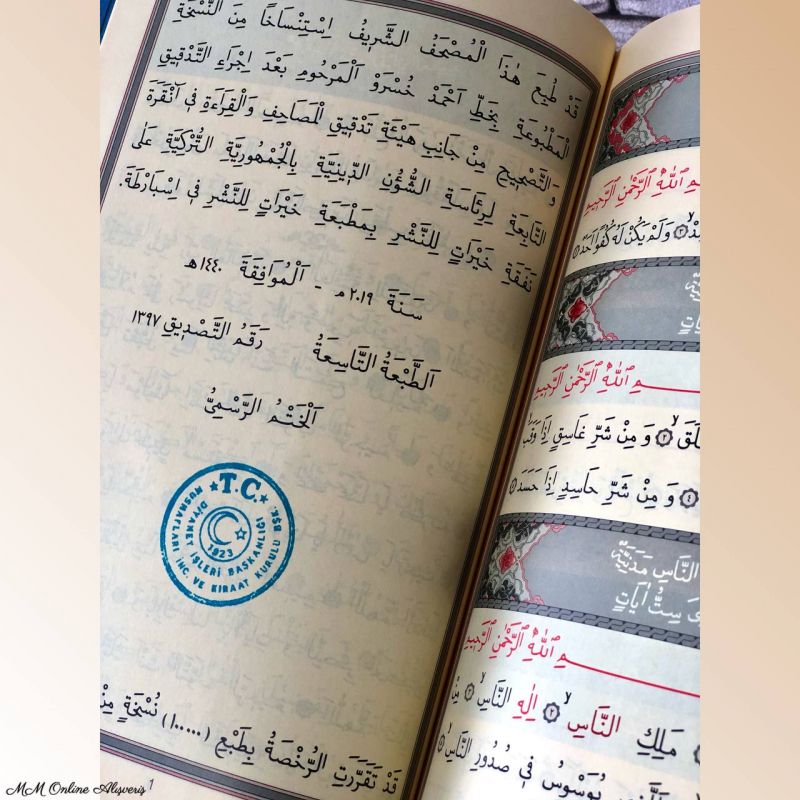 قَدْ طُبِعَ هٰذَا الْمُصْحَفُ الشَّرِيفُ اِسْتِنْسَاخًا مِنَ النُّسْخَةِ
الْمَطْبُوعَةِ بِخَطِّ اَحْمَدْ خُسْرَوْ اَلْمَرْحُومِ بَعْدَ اِجْرَاءِ التَّدْقِيقِ
وَالتَّصْحِيحِ مِنْ جَانِبِ هَيْئَةِ تَدْقِيقِ الْمَصَاحِفِ وَالْقِرَاءَةِ فِى اَنْقَرَةَ
التَّابِعَةِ لِرِئَاسَةِ الشُّؤُنِ الدِّينِيَّةِ بِالْجُمْهُورِيَّةِ التُّرْكِيَّةِ عَلٰى
نَفَقَةِ خَيْرَاتٍ لِلنَّشْرِ بِمَطْبَعَةِ خَيْرَاتٍ لِلنَّشْرِ فِى اِسْبَارْطَةَ.
سَنَةَ ٢٠١٩ م - اَلْمُوَافِقَةَ ١٤٤٠ ه
اَلطَّبْعَةُ التَّاسِعَةُ رَقَمُ التَّصْدِيقِ ١٣٩٧
اَلْخَتْمُ الرَّسْمِىُّ
T.C.
DİYANET İŞLERİ BAŞKANLIĞI
MUSHAFLARI İNC. VE KIRAAT KURULU BŞK.
1923
قَدْ تَقَرَّرَتِ الرُّخْصَةُ بِطَبْعِ (١٠٠٠٠٠) نُسْخَةٍ مِنْ
ـمِ اللّٰهِ الرَّحْمٰنِ الرَّحِيمِ
وَلَمْ يَكُنْ لَهُ كُفُوًا اَحَدٌ ٤
ـمِ اللّٰهِ الرَّحْمٰنِ الرَّحِيمِ
وَمِنْ شَرِّ غَاسِقٍ اِذَا وَقَبَ
وَمِنْ شَرِّ حَاسِدٍ اِذَا حَسَدَ
النَّاسِ مَدَنِيَّةٌ
سِتُّ اٰيَاتٍ
ـمِ اللّٰهِ الرَّحْمٰنِ الرَّحِيمِ
مَلِكِ النَّاسِ ٢ اِلٰهِ النَّاسِ ٣ مِنْ
يُوَسْوِسُ فِى صُدُورِ النَّاسِ
MM Online Alışveriş